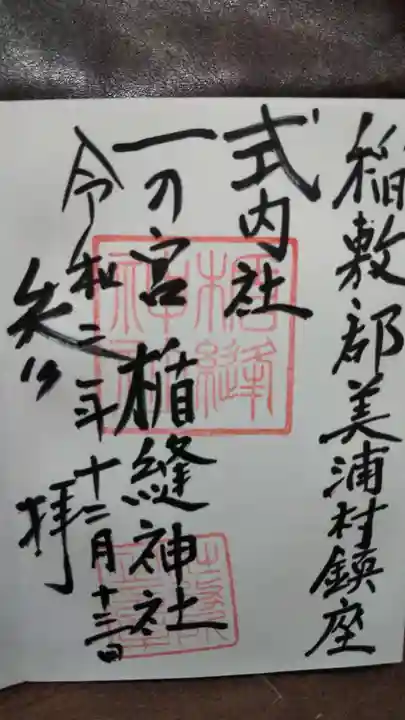 稲敷郡美浦村鎮座
式内社
一の宮 楯縫神社
令和二年十二月十三日
参拝
楯縫神社